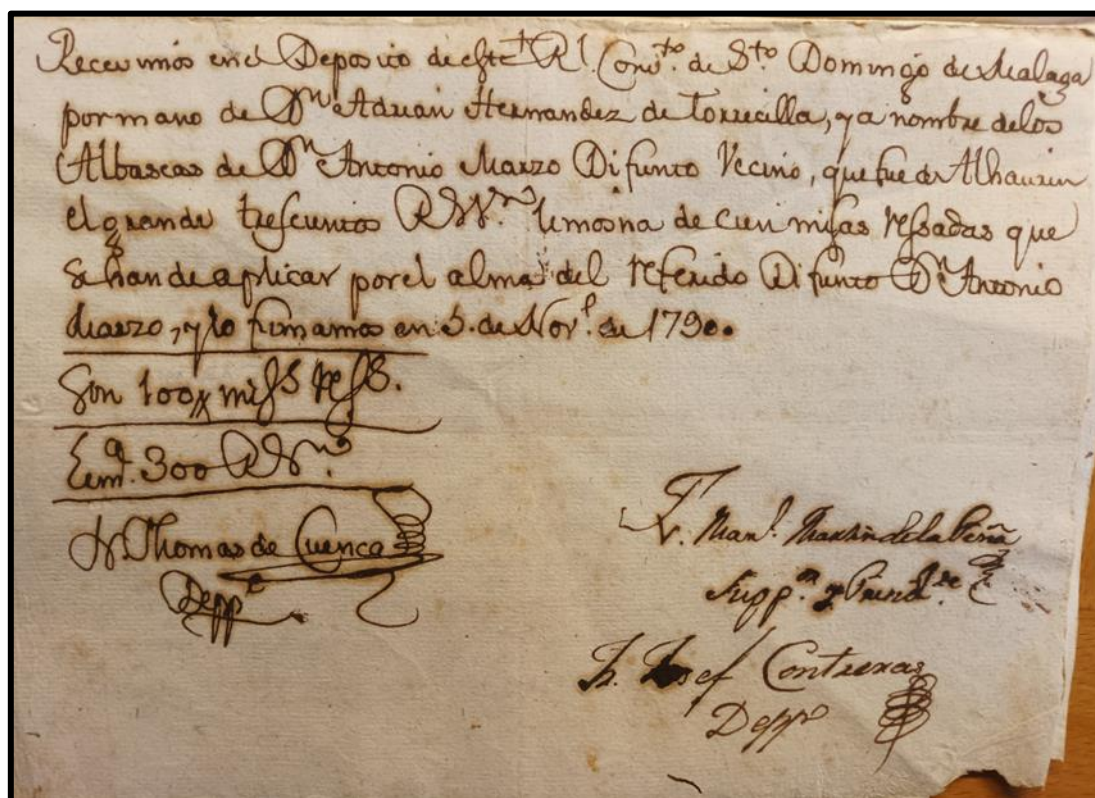 Recevimos en el Deposito de este Rl. Convto. de Sto. Domingo de Malaga
por mano de Dn. Adrian Hernandez de Torrecilla, y a nombre delos
Albaseas de Dn. Antonio Marzo Difunto Vecino, que fue de Alhaurin
el grande trescientos Rs Vn. limosna de cien missas ressadas que
se han de aplicar por el alma del referido Difunto Dn. Antonio
Marzo, y lo firmamos en 5. de Nove. de 1790.
Son 100 miss ress.
Lima. 300 Rs Vn.
Fr. Thomas de Cuenca
Deppo
Fr. Manl. Martin de la Peña
Supp.or y Presid.te
Fr. Josef Contreras
Deppo